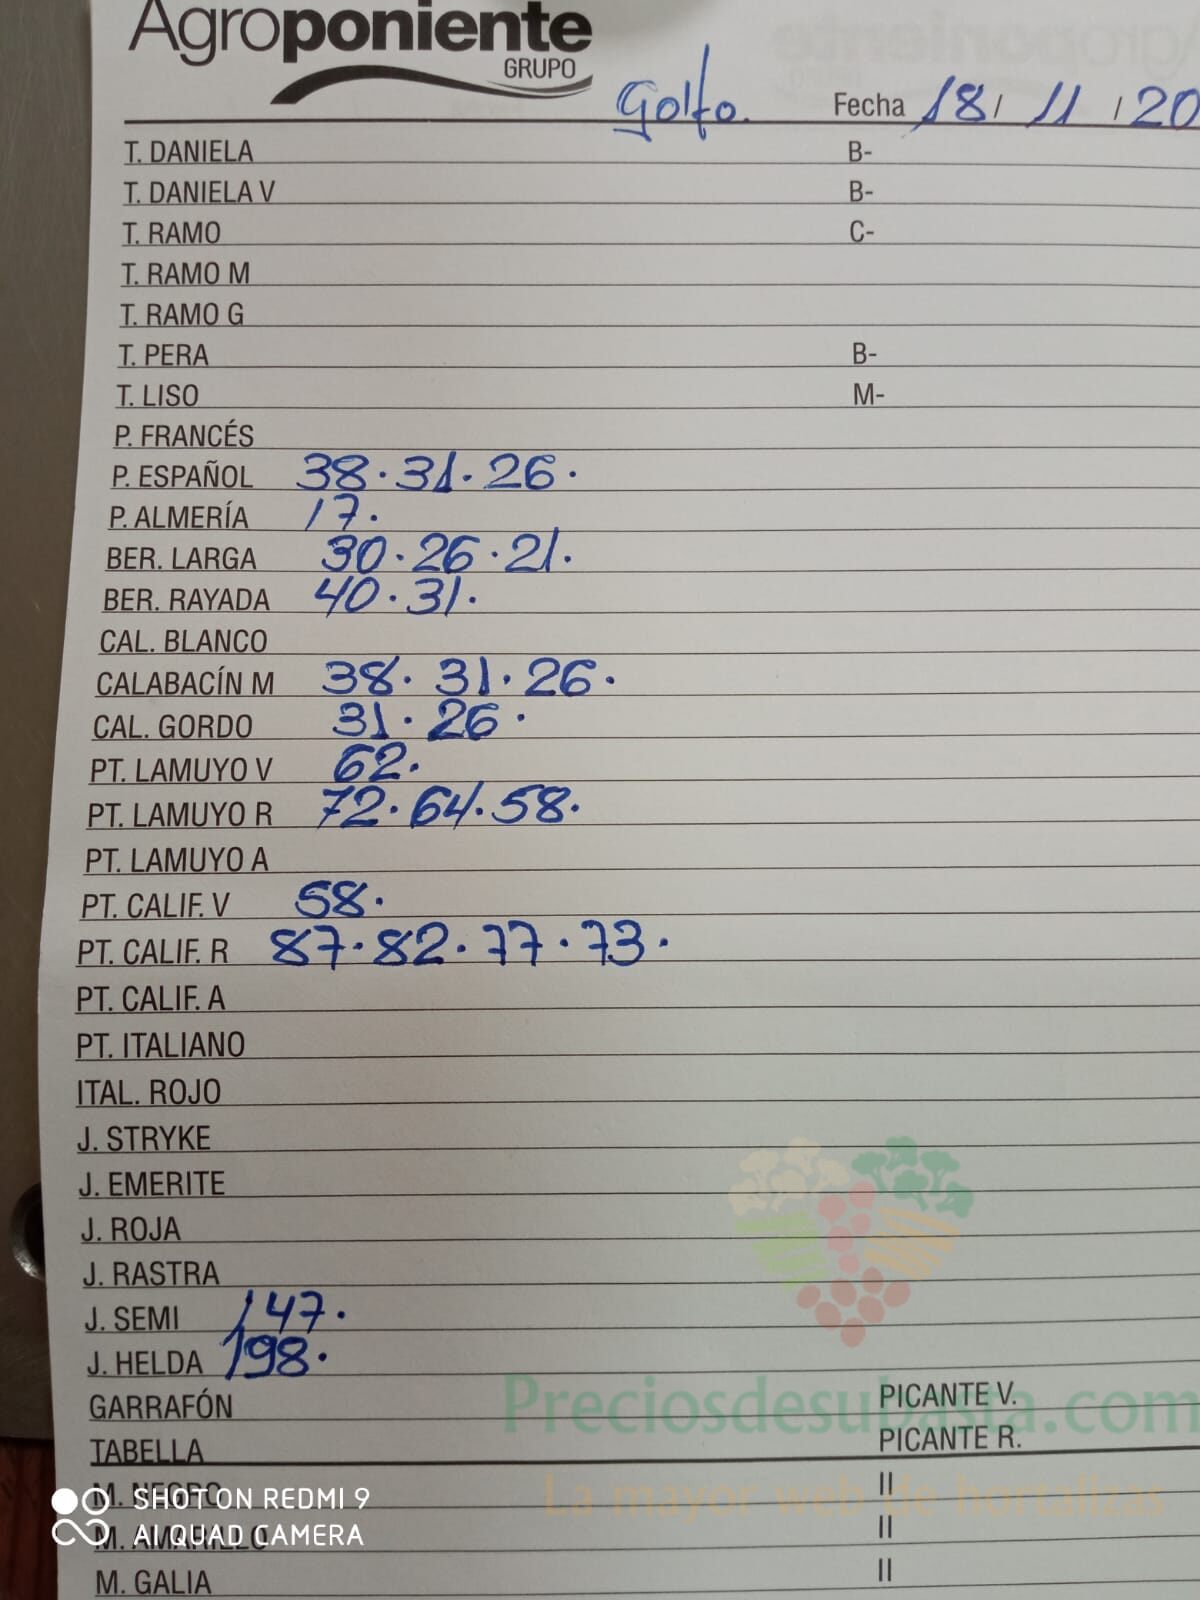 Agroponiente
GRUPO
Golfo. Fecha 18/ 11 /20
T. DANIELA B-
T. DANIELA V B-
T. RAMO C-
T. RAMO M
T. RAMO G
T. PERA B-
T. LISO M-
P. FRANCÉS
P. ESPAÑOL 38·31·26·
P. ALMERÍA 17.
BER. LARGA 30·26·21.
BER. RAYADA 40·31.
CAL. BLANCO
CALABACÍN M 38·31·26·
CAL. GORDO 31·26·
PT. LAMUYO V 62.
PT. LAMUYO R 72·64·58·
PT. LAMUYO A
PT. CALIF. V 58·
PT. CALIF. R 87·82·77·73·
PT. CALIF. A
PT. ITALIANO
ITAL. ROJO
J. STRYKE
J. EMERITE
J. ROJA
J. RASTRA
J. SEMI 147·
J. HELDA 198·
GARRAFÓN PICANTE V.
Preciosdesubasta.com
TABELLA PICANTE R.
M. NEGRO II
La mayor web de hortalizas
SHOT ON REDMI 9
AI QUAD CAMERA
M. AMARILLO II
M. GALIA II